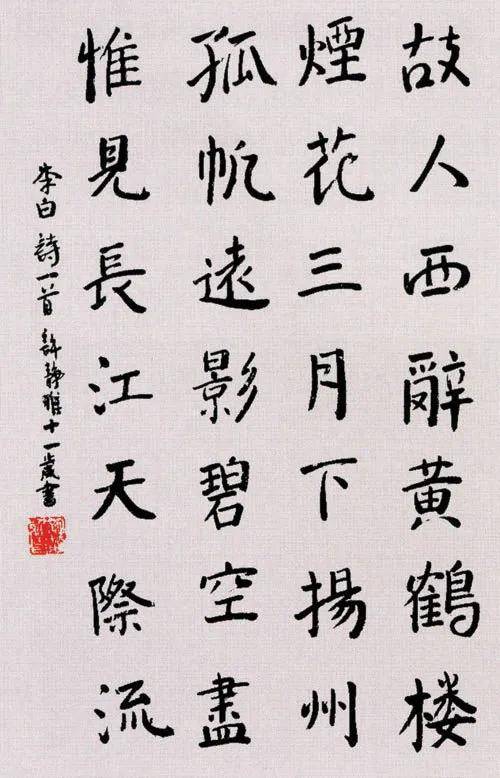 故人西辭黄鶴楼
煙花三月下揚州
孤帆遠影碧空盡
惟見長江天際流
李白詩一首 許静雅十一歲書